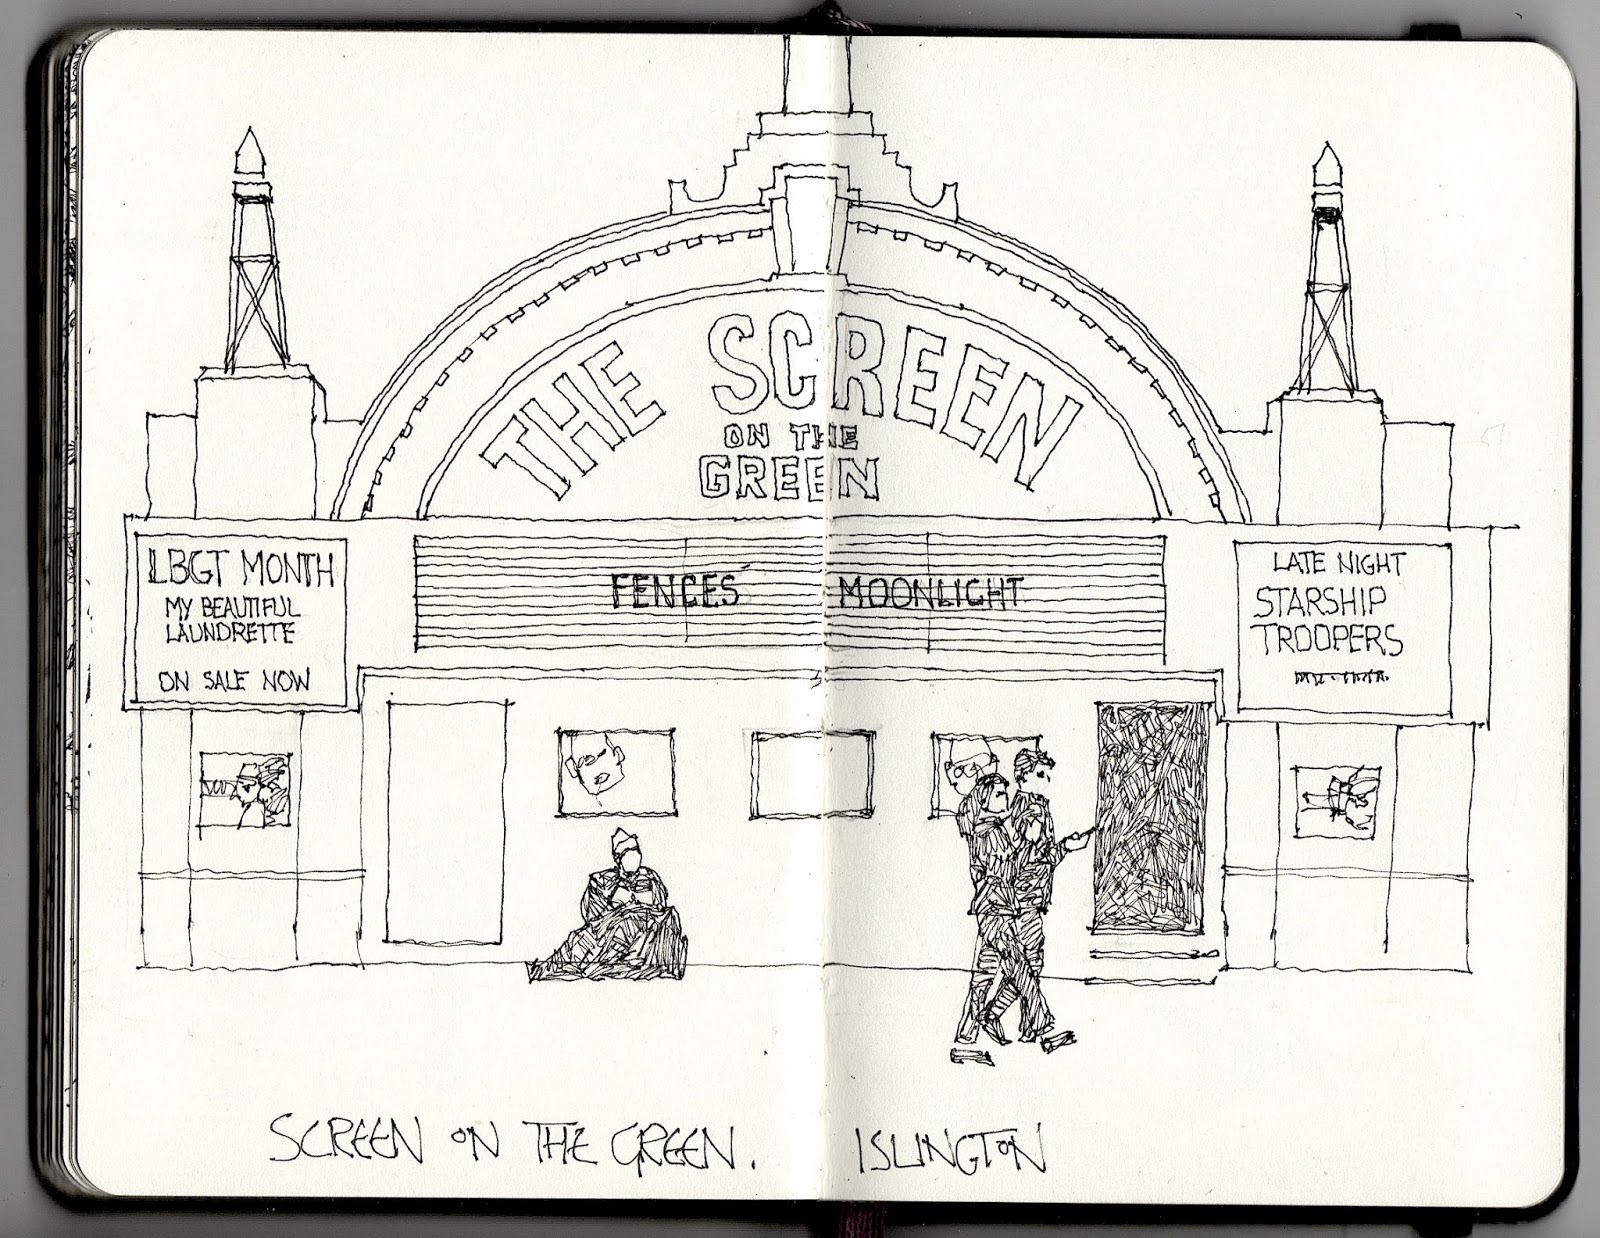 THE SCREEN
ON THE
GREEN
LBGT MONTH
MY BEAUTIFUL
LAUNDRETTE
ON SALE NOW
FENCES MOONLIGHT
LATE NIGHT
STARSHIP
TROOPERS
SCREEN ON THE GREEN. ISLINGTON